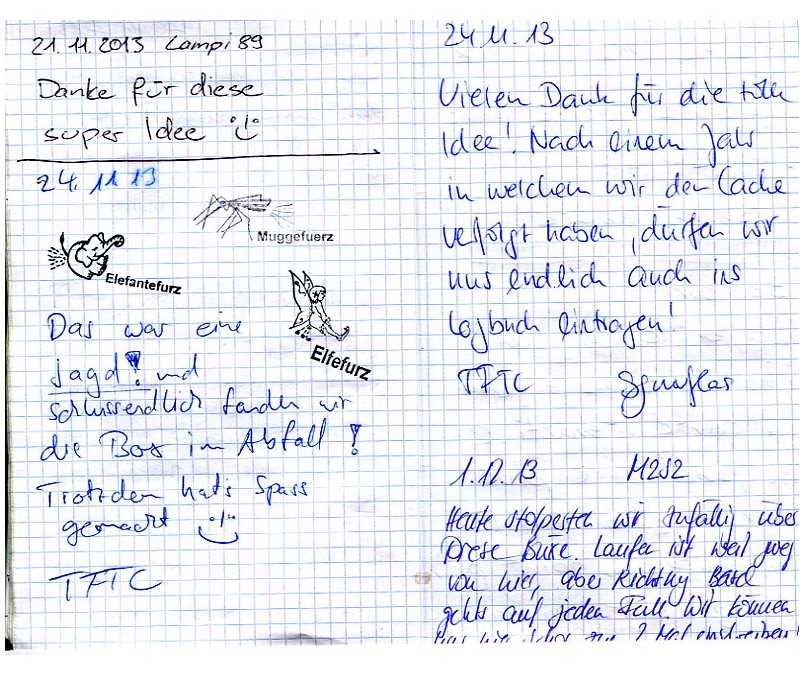 21.11.2013 Lampi89
Danke für diese
super Idee
24. 11 13
Muggefuerz
Elefantefurz
Elfefurz
Das war eine
Jagd! und
schlussendlich fanden wir
die Box im Abfall!
Trotzdem hat's Spass
gemacht
TFTC
24 11. 13
Vielen Dank für die tolle
Idee! Nach einem Jahr
in welchem wir den Cache
verfolgt haben, dürfen wir
uns endlich auch ins
Logbuch eintragen!
TFTC
1.12.13 M2S2
Heute stolperten wir zufällig über
Diese Büxe. Laufen ist weit weg
von hier, aber Richtung Basel
gehts auf jeden Fall. Wir können